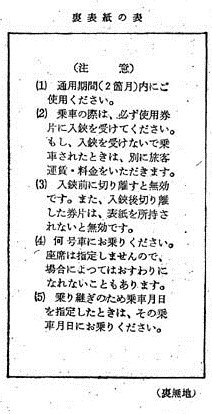 裏表紙の表
(注　意)
(1)　通用期間(2箇月)内にご
使用ください。
(2)　乗車の際は、必ず使用券
片に入鋏を受けてください。
もし、入鋏を受けないで乗
車されたときは、別に旅客
運賃・料金をいただきます。
(3)　入鋏前に切り離すと無効
です。また、入鋏後切り離
した券片は、表紙を所持さ
れないと無効です。
(4)　何号車にお乗りください。
座席は指定しませんので、
場合によつてはおすわりに
なれないこともあります。
(5)　乗り継ぎのため乗車月日
を指定したときは、その乗
車月日にお乗りください。
(裏無地)